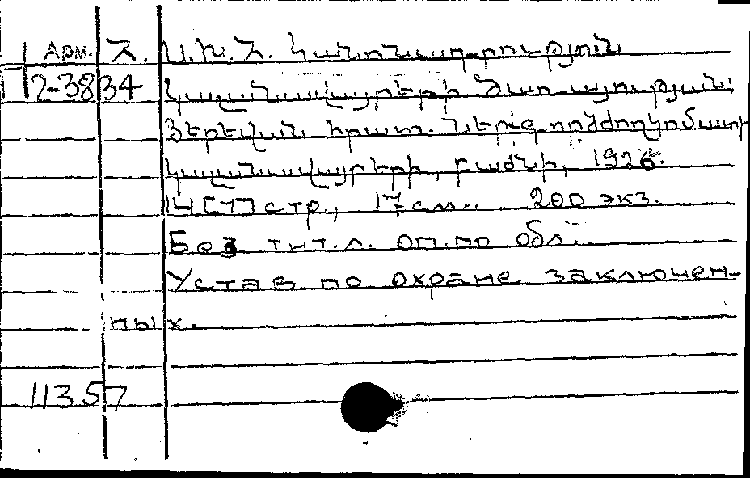 Арм. Հ. Ս.Խ.Հ. Կանոնադրություն
2-3834 կալանավայրերի ծառայության
Յերեվան հրատ. Ներգործժողկոմատի
կալանավայրերի, բաժնի, 1926.
14 [7] стр., 17 см.. 200 экз.
Без тит.л. Оп.по обл.
Устав по охране заключен-
ных.
11357